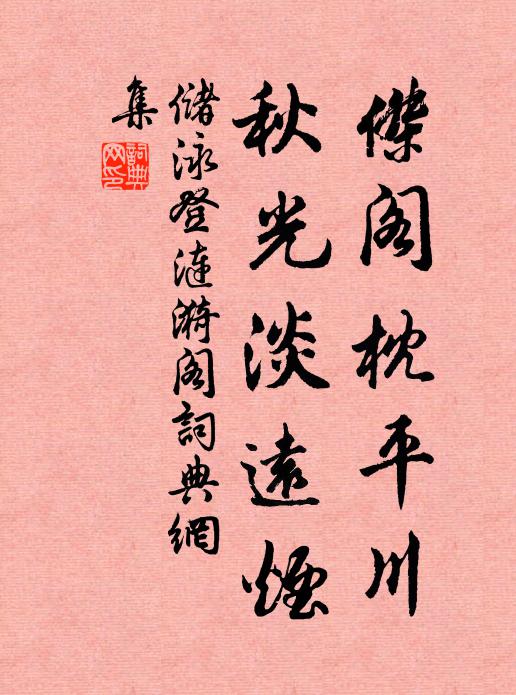 傑閣枕平川
秋光淡遠煙
儲泳登漣漪閣詞典網
集
詞典網印